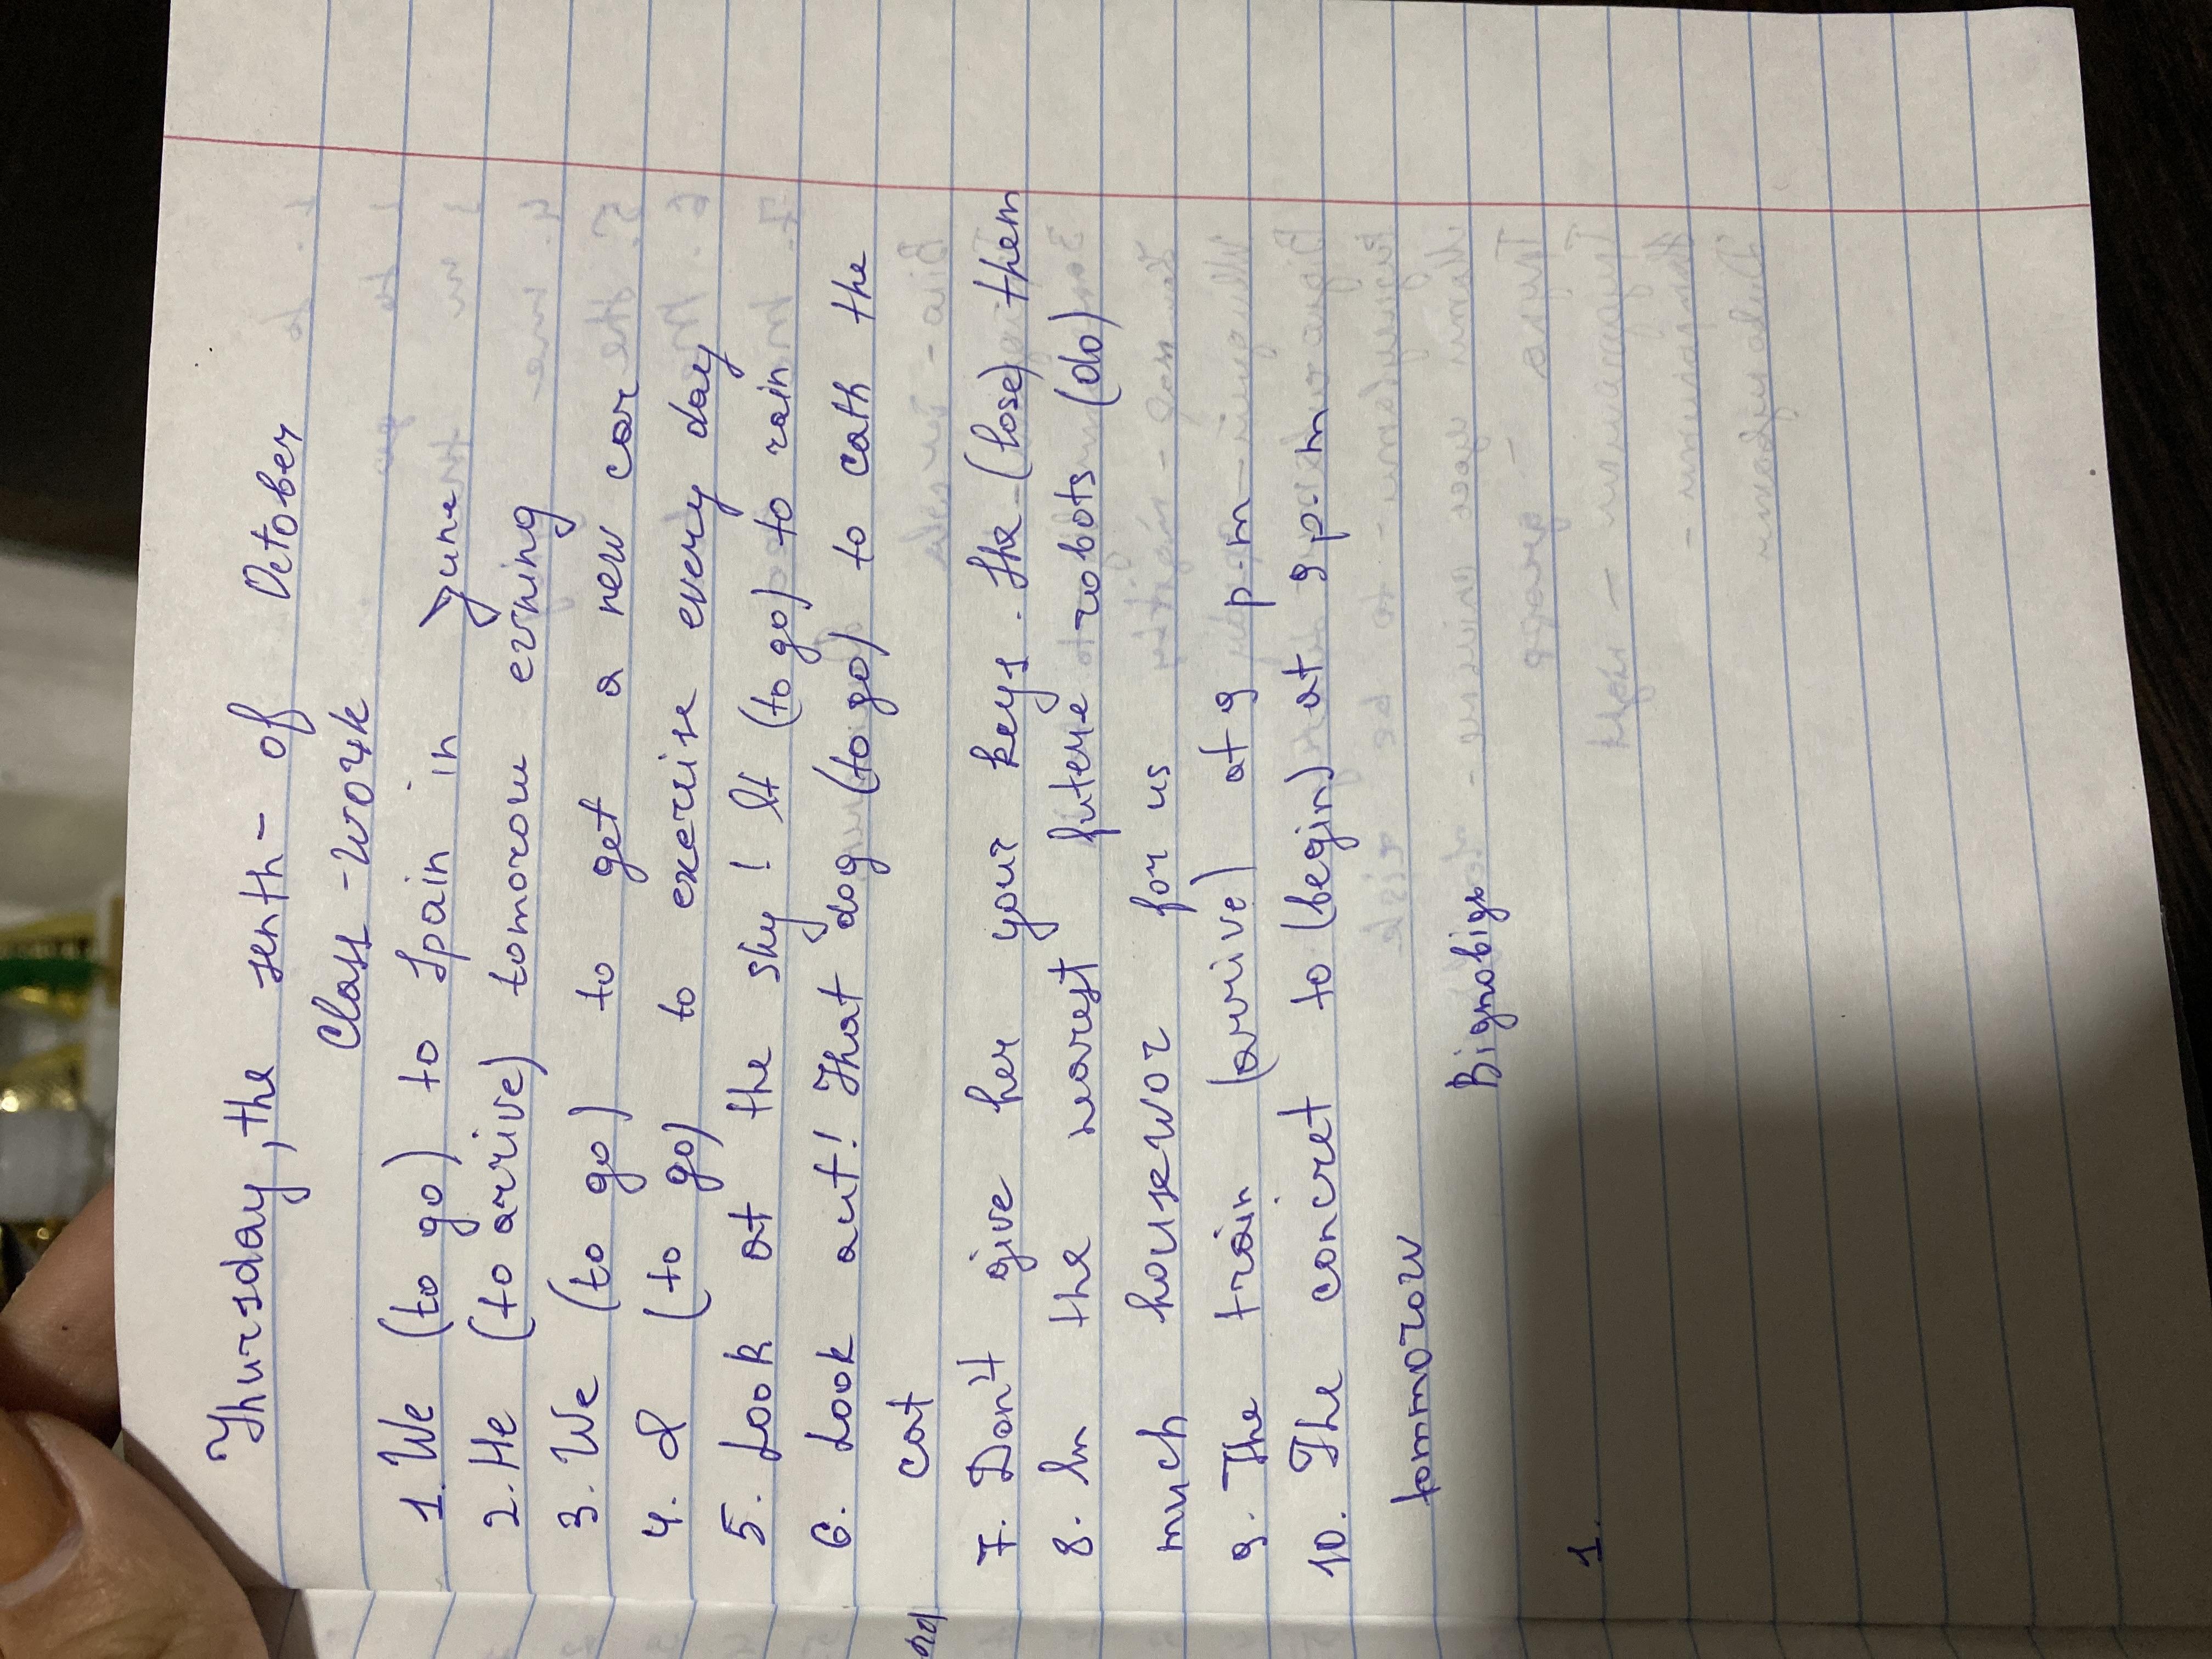 Thursday, the senth - of October
Class - work
1. We (to go) to Spain in June
2. He (to arrive) tomorow evning
3. We (to go) to get a new car
4. I (to go) to exercise every day
5. Look at the sky! It (to go) to rain
6. Look out! That dog (to go) to cath the
cat
7. Don't give her your keys. She (lose) them
8. In the nearest future robots (do)
much housewor for us
9. The train (arrive) at 9 p.m
10. The concret to (begin) at 9 p.m
tommorow
Відповіді
1.